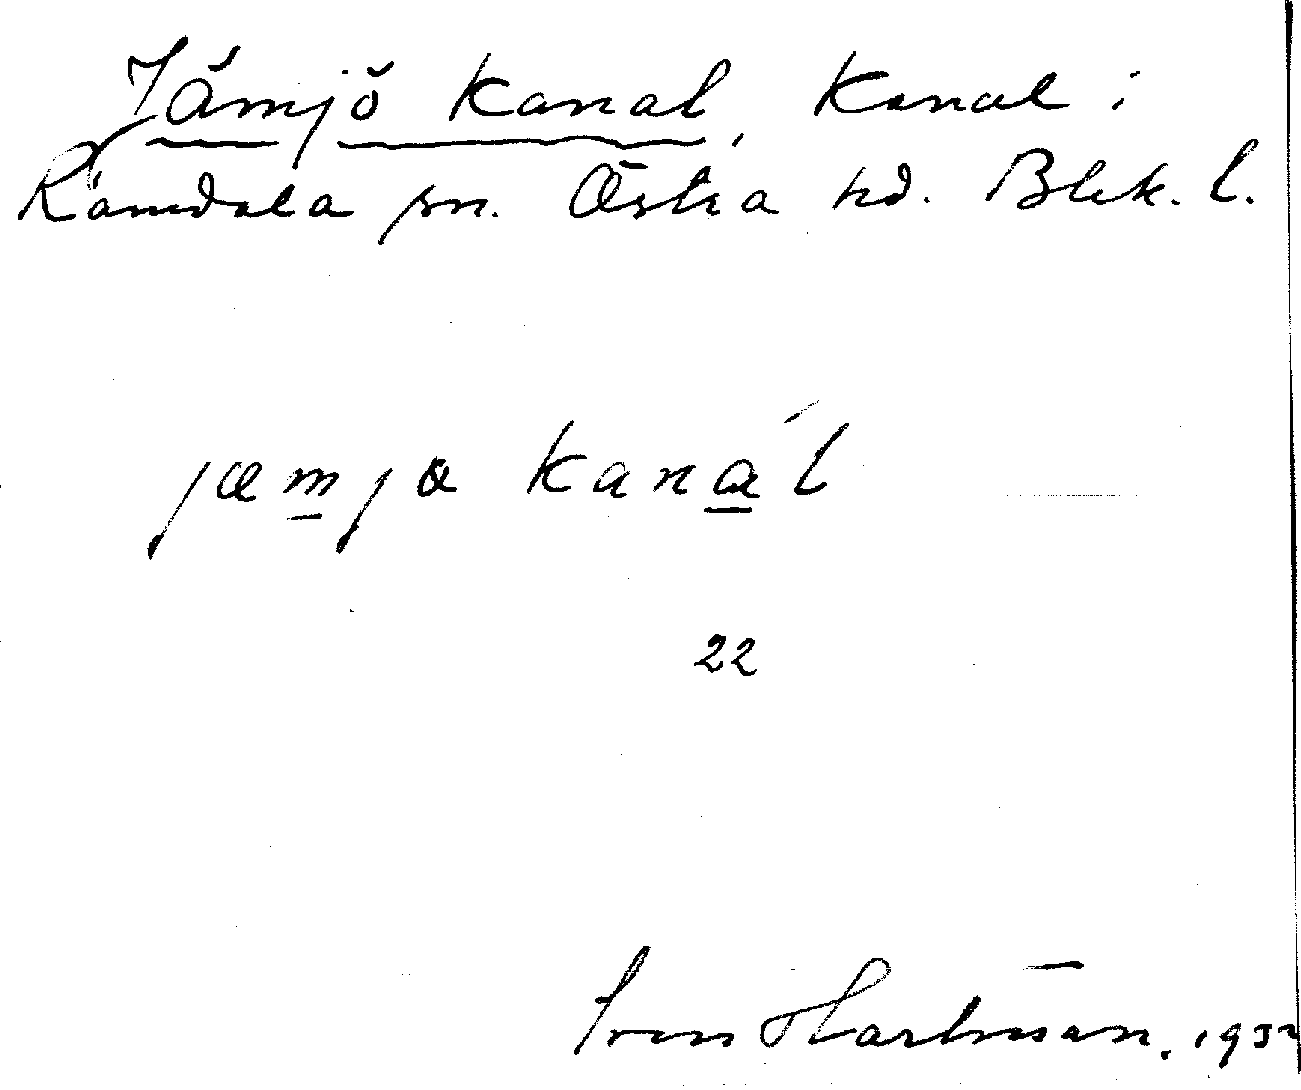 Jämjö Kanal, Kanal i
Ramdala sn. Östra hd. Blek. l.
jæmjø kanál
22
Hartman. 193